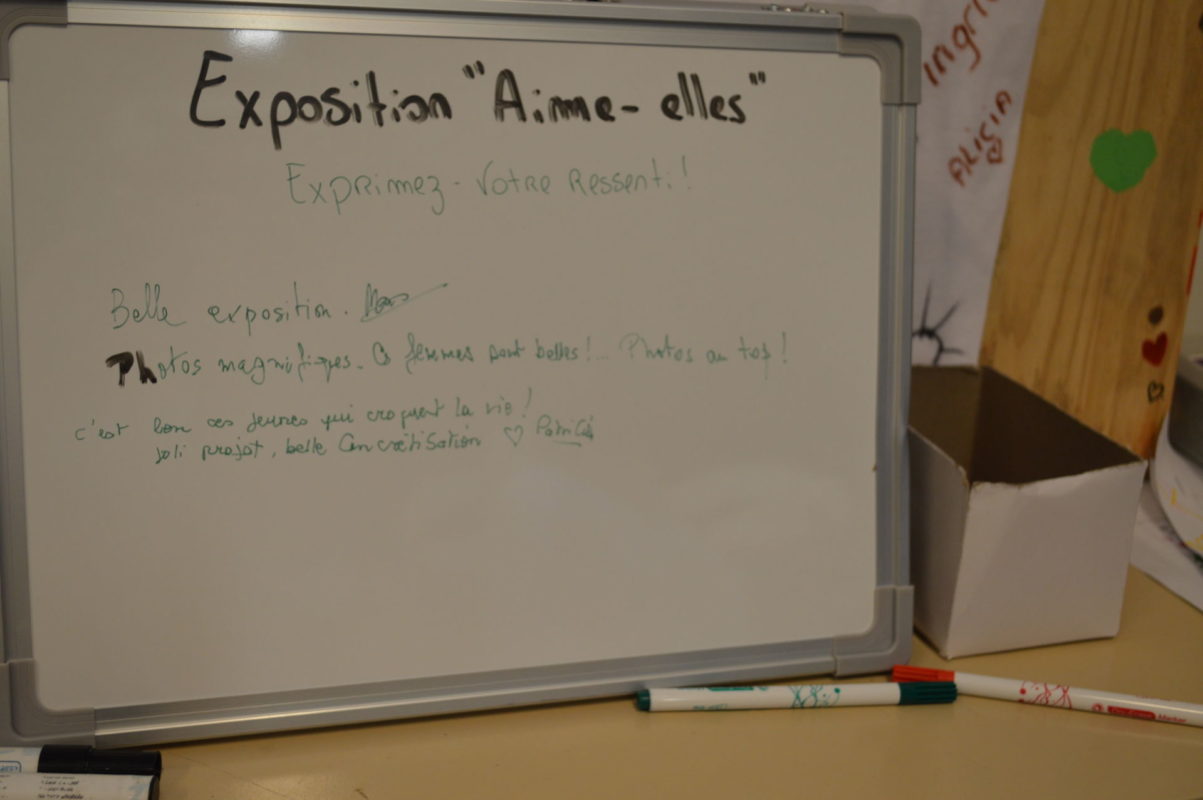 Exposition "Aime-elles"
Exprimez-Votre Ressenti!
Belle exposition.
Photos magnifiques. Ces femmes sont belles!... Photos au top!
c'est bon ces jeunes qui croquent la vie!
joli projet, belle Concrétisation ♡ Patricia
Ingrid
Alicia